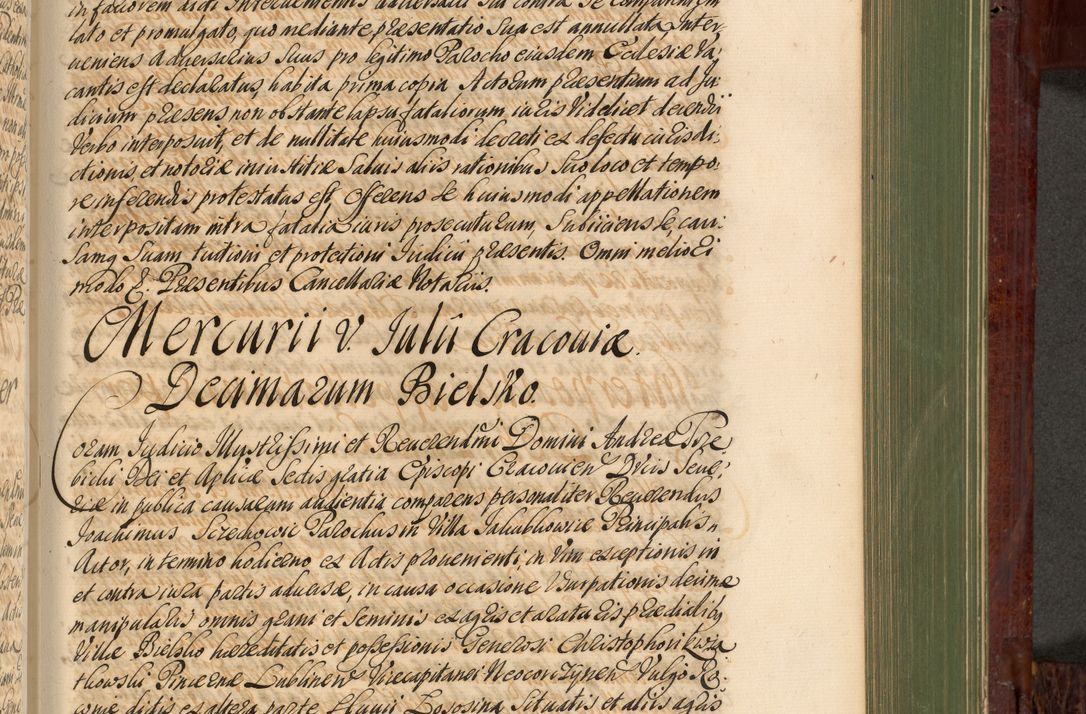 in favorem dicti Intervenientis adversarii sui contra se comparentem
lato et promulgato, quo mediante præsentatio sua est annullata, Inter
ueniens Aduersarius Suus pro legitimo Parocho eiusdem Ecclesiæ va
cantis est declaratus, habita prima copia Actorum præsentium ad Ju
dicium præsens non obstante lapsu fataliorum iuris videlicet decendii
Verbo interposuit, et de nullitate huiusmodi decreti ex defectu iurisdi,
ctionis, et notoriæ iniustitiæ Saluis aliis rationibus Suo loco et tempo,
re inferendis protestatus est, Offerens se huiusmodi appellationem
interpositam intra fatalia iuris prosecuturum, Subiiciens se, cau,
samq Suam tuitioni et protectioni Judicii præsentis. Omni meliori
modo &. Præsentibus Cancellariæ Notariis.
Mercurii v. Julii Cracouiæ.
Decimarum Bielsko.
Coram Judicio Illustrissimi et Reuerendmi Domini Andreæ Trze
bicki Dei et Aplicæ Sedis gratia Episcopi Cracouien Ducis Seue,
riæ in publica causarum audientia comparens personaliter Reuerendus
Joachimus Parochus in Villa Principalis
Actor, in termino hodierno ex Actis prouenienti, in Vim exceptionis in
et contra iura partis aduersæ, in causa occasione Vsurpationis decimæ
manipularis omnis grani et Seminis ex agris et araturis prædialibq
Villæ Bielsko hæreditatis et possessionis Generosi Christophori
Pincernæ Lublinen Vicecapitanei Neocorczynen Vulgo
dictis ex altera parte fluuii Łososina Situatis et aliis agris